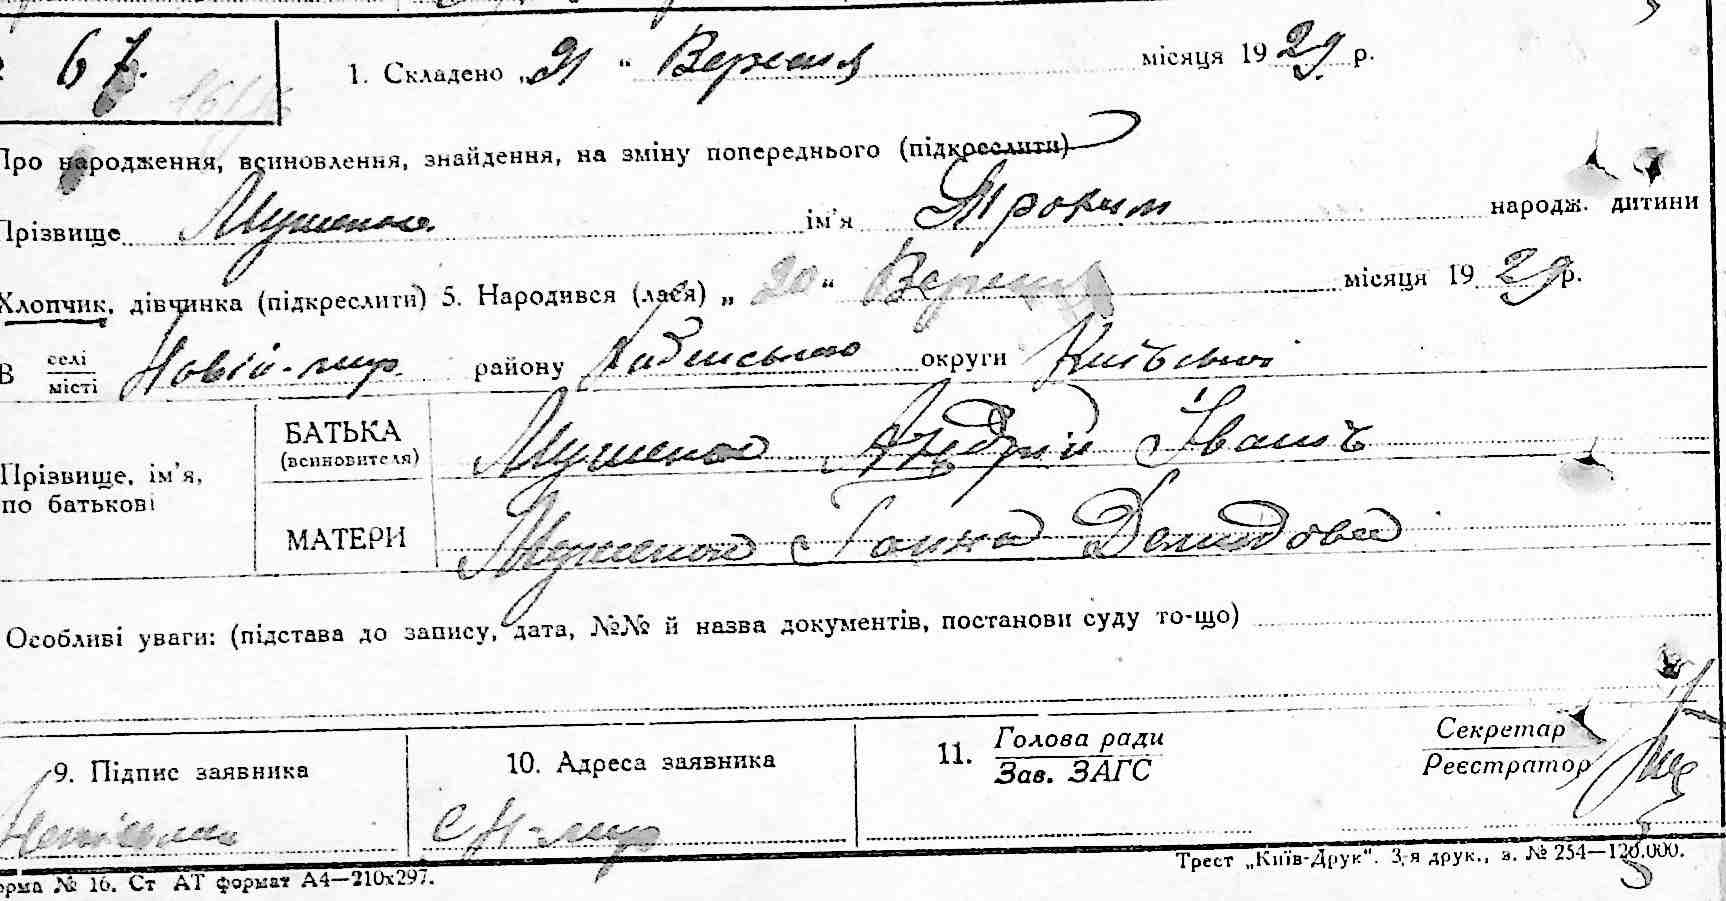 67. 1. Складено „21“ Вересня місяця 1929 р.
Про народження, всиновлення, знайдення, на зміну попереднього (підкреслити)
Прізвище Мушенок ім'я Трохим народж. дитини
Хлопчик, дівчинка (підкреслити) 5. Народився (лася) „20“ Вересня місяця 1929 р.
В селі Новій-мир району Хабенського округи Київської
місті
БАТЬКА Мушенок Андрій Іванів
(всиновителя)
Прізвище, ім'я,
по батькові
МАТЕРИ Мушенок Ганна Демидова
Особливі уваги: (підстава до запису, дата, №№ й назва документів, постанови суду то-що)
9. Підпис заявника 10. Адреса заявника 11. Голова ради Секретар
Зав. ЗАГС Реєстратор
с Н-мир
Трест „Київ-Друк“. 3-я друк., з. № 254—120.000.
орма № 16. Ст АТ формат А4—210х297.